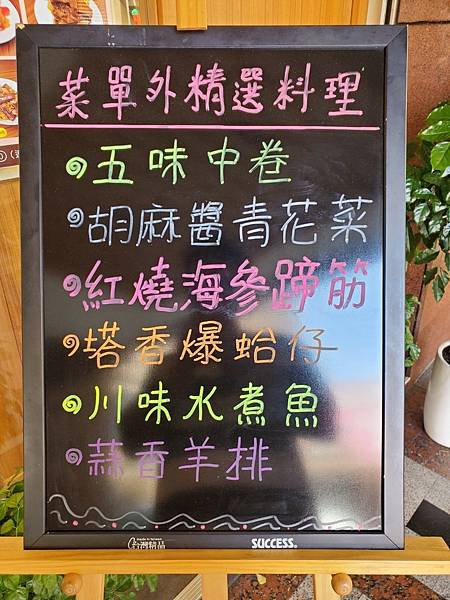 菜單外精選料理
五味中卷
胡麻醬青花菜
紅燒海參蹄筋
塔香爆蛤仔
川味水煮魚
蒜香羊排
台灣精品 SUCCESS